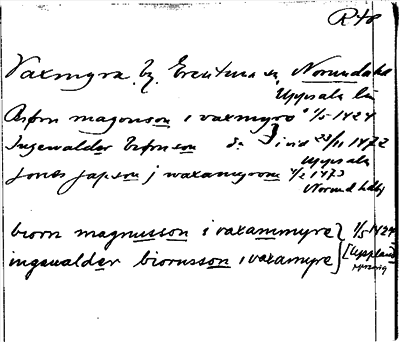 R48
Vaxmyra, by, Erentuna sn, Norunda hd
Uppsala län
Biørn magonson i vaxmyro 1/5 1424
Ingewalder biørnson d:o 23/11 1472
Uppsala
Jonis Japson j waxamyrom 4/2 1473
Norund hdg
biorn magnusson i vaxammyre } 1/5 1424
ingewalder biornsson i vaxamyre } [Uppland]